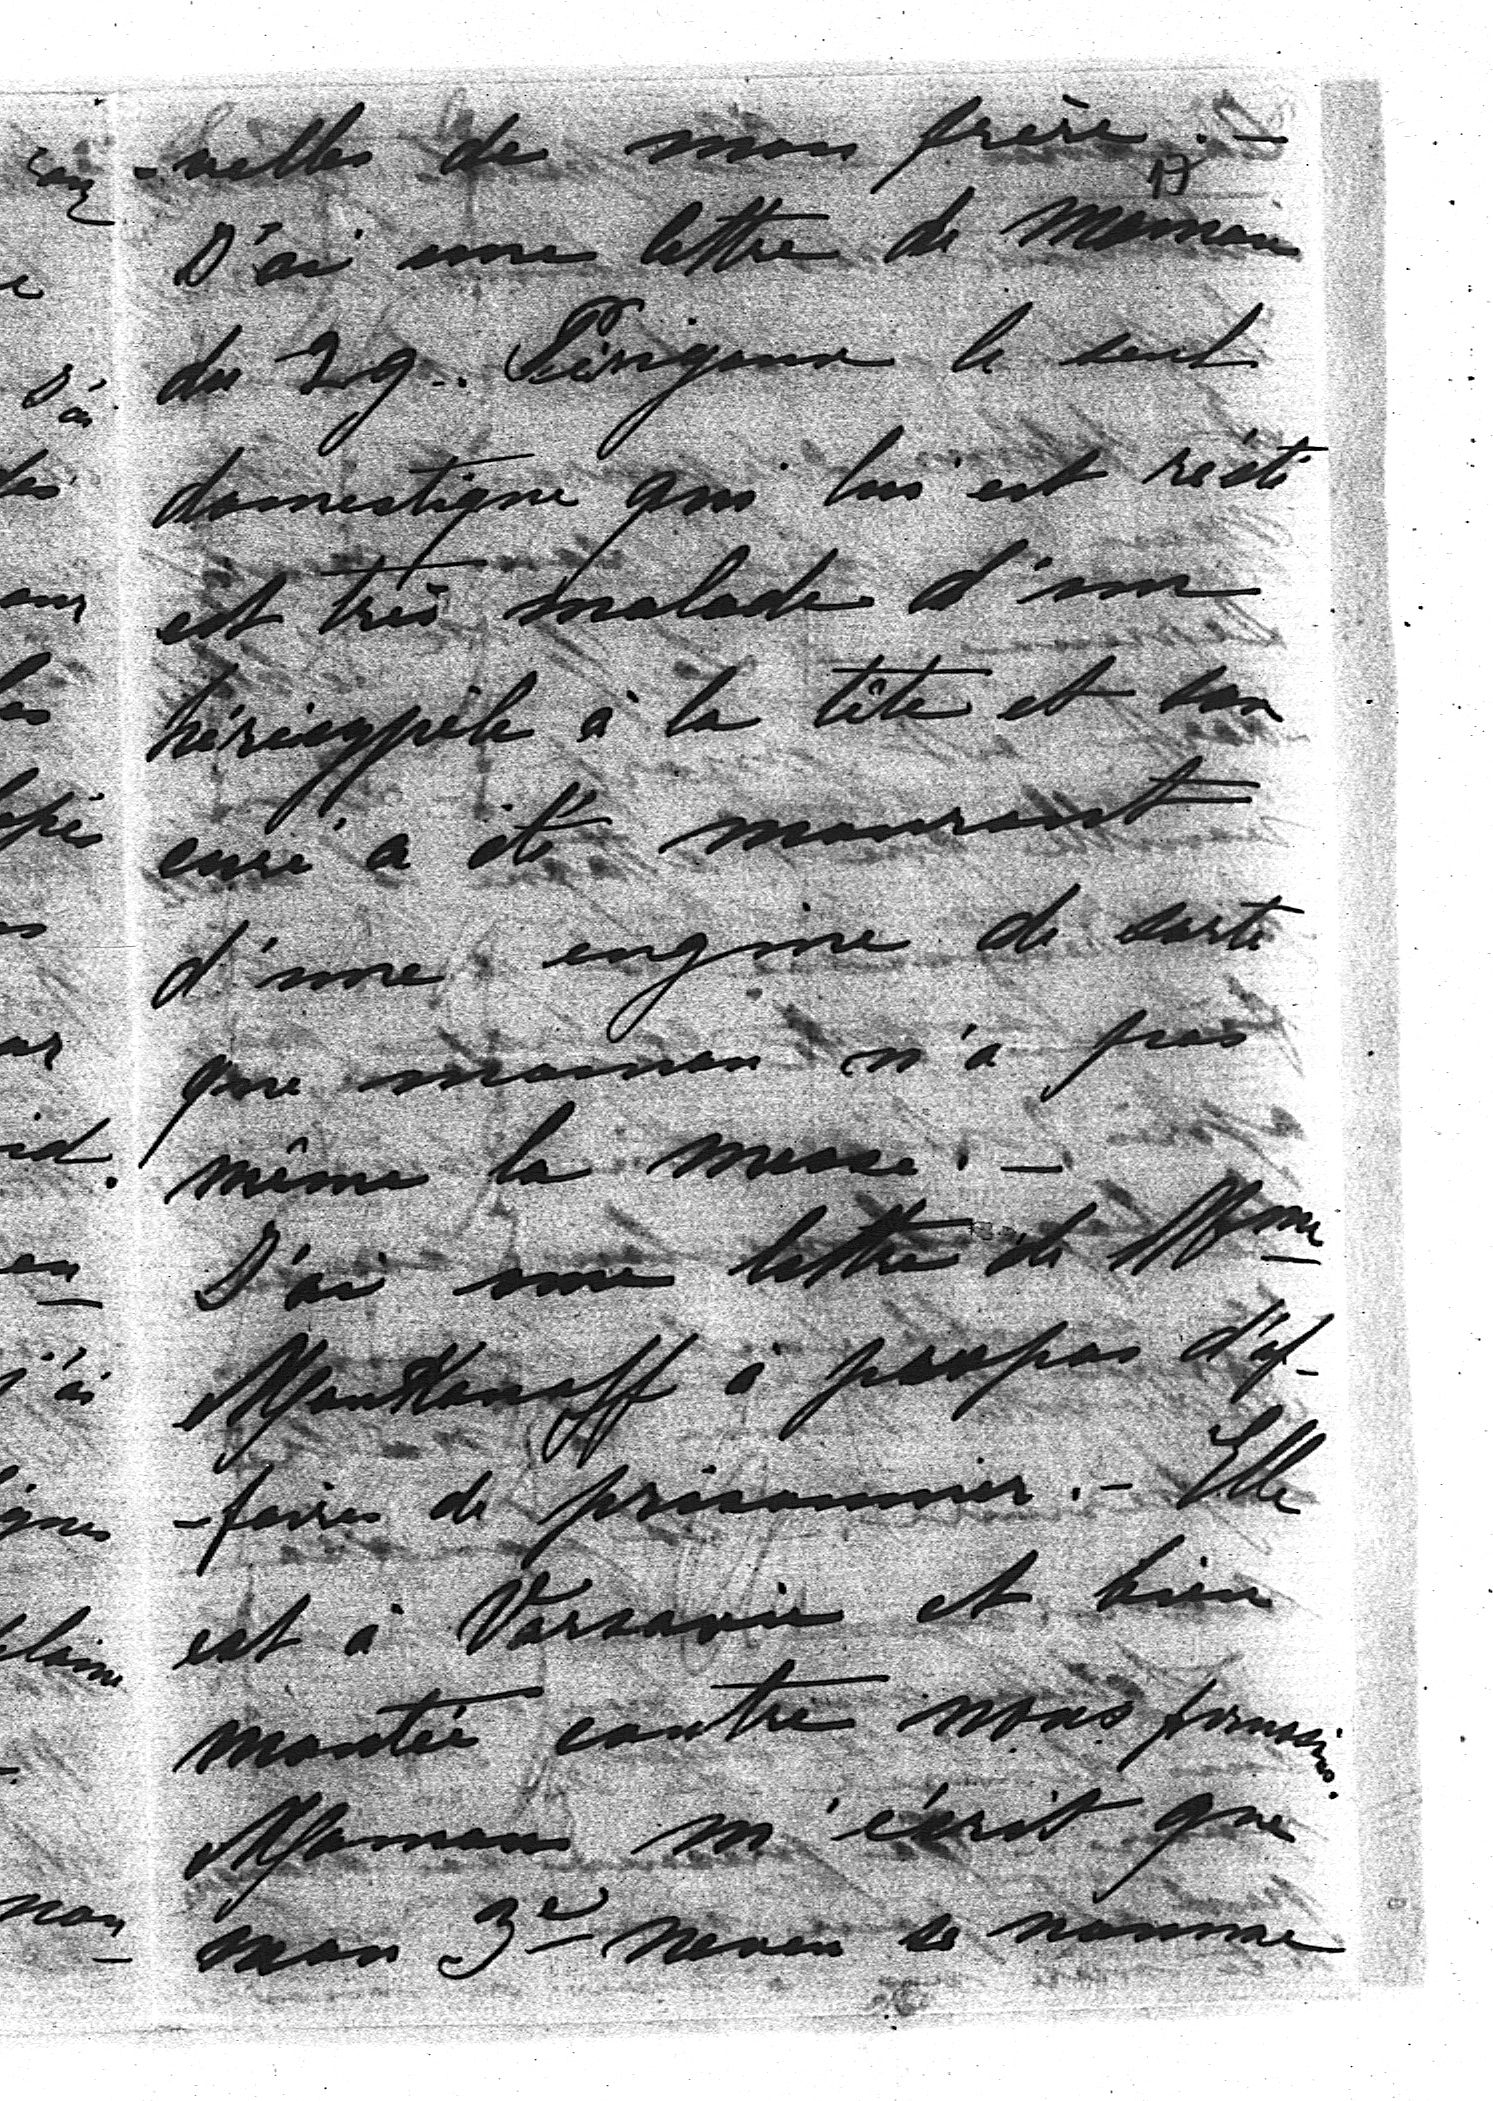 -velles de mon frère. -
J'ai une lettre de Maman
du 29.. Périgueux le seul
domestique qui lui est resté
est très malade d'un
hérisypèle à la tête et son
curé a été mourant
d'une engine de sorte
que maman n'a pas
même la messe. -
J'ai une lettre de Mme
Moukanoff à propos d'af-
-faires de prisonnier. - Elle
est à Varsovie et bien
montée contre nous
Maman m'écrit que
mon 3e neveu se nomme